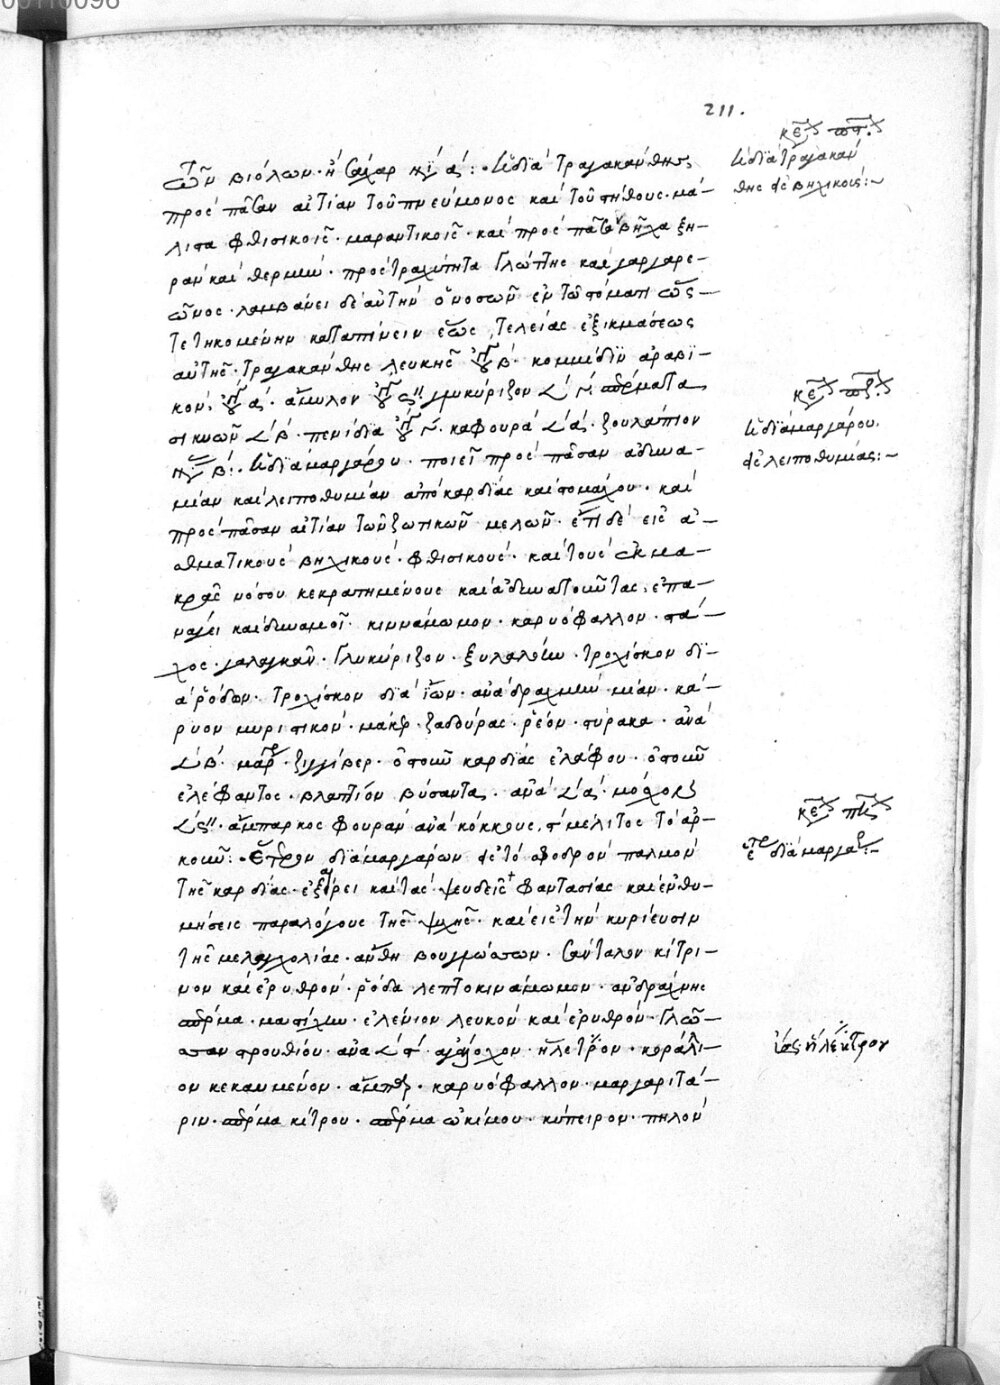 211.
τῶν βιόλων· ἢ σάχαρ α΄: · ἡ διὰ τραγακάνθης
πρὸς πᾶσαν αἰτίαν τοῦ πνεύμονος καὶ τοῦ στήθους· μά-
λιστα φθισικοῖς· μαραντικοῖς· καὶ πρὸς πᾶσαν βῆχα ξη-
ρὰν καὶ θερμὴν· πρὸς τραχύτητα γλώττης καὶ γαργαρε-
ῶνος· λαμβάνει δὲ αὐτὴν ὁ νοσῶν ἐν τῷ στόματι ὡς
τετηκομένην καταπίνειν ἕως τελείας ἐξικμάσεως
αὐτῆς· τραγακάνθης λευκῆς β΄· κομμίδιν ἀραβι-
κὸν· α΄· ἄμυλον γλυκύριζον γ΄· σπέρματα
σικυῶν β΄· πενίδια γ΄· καφουρὰ α΄· ζουλάπιον
β΄: · ἡ διὰ μαργάρου· ποιεῖ πρὸς πᾶσαν ἀδυνα-
μίαν καὶ λειποθυμίαν ἀπὸ καρδίας καὶ στομάχου· καὶ
πρὸς πᾶσαν αἰτίαν τῶν ζωτικῶν μελῶν· ἔτι δὲ εἰς ἀ-
σθματικοὺς βηχικοὺς· φθισικοὺς· καὶ τοὺς ἐκ μα-
κρᾶς νόσου κεκρατημένους καὶ ἀδυνατοῦντας· ἐπα-
νάγει καὶ δυναμοῖ· κιννάμωμον· καρυόφαλλον· στά-
χος· γαλαγκὰν· γλυκύριζον· ξυλαλόην· τροχίσκον δι-
ὰ ῥόδων· τροχίσκον διὰ ἴων· ἀνὰ δραχμὴν μίαν· κά-
ρυον μυριστικὸν· μάκερ· ζαδούρας· ῥέον· στύρακα· ἀνὰ
β΄· ζιγγίβερ· ὀστοῦν καρδίας ἐλάφου· ὀστοῦν
ἐλέφαντος· βλαττίον βύσαντας· ἀνὰ α΄· μόσχου
ἄμπαρ καφουρὰν ἀνὰ κόκκους στ΄ μέλιτος τὸ ἀρ-
κοῦν: · Ἕτερον διὰ μαργάρων εἰς τὸ σφοδρὸν παλμὸν
τῆς καρδίας· ἐξαίρει καὶ τὰς ψευδεῖς φαντασίας καὶ ἐνθυ-
μήσεις παραλόγους τῆς ψυχῆς· καὶ εἰς τὴν κυρίευσιν
τῆς μελαγχολίας· ἄνθη βουγλώσσων· σάνταλον κίτρι-
νον καὶ ἐρυθρὸν· ῥόδα λεπτοκινάμωμον· ἀνδράχνης
σπέρμα· μαστίχην· ἐλένιον λευκὸν καὶ ἐρυθρὸν· γλῶσ-
σαν στρουθίου· ἀνὰ στ΄· ἀγάλοχον· ἤλεκτρον· κοράλι-
ον κεκαυμένον· ἄμπαρ· καρυόφαλλον· μαργαριτά-
ριν· σπέρμα κίτρου· σπέρμα ὠκίμου· κύπειρον· πηλὸν
ἡ διὰ τραγακάν
θης εἰς βηχικούς: ~
ἡ διὰ μαργάρου·
εἰς λειποθυμίας: ~
διὰ μαργάρ: ~
ἠλέκτρου